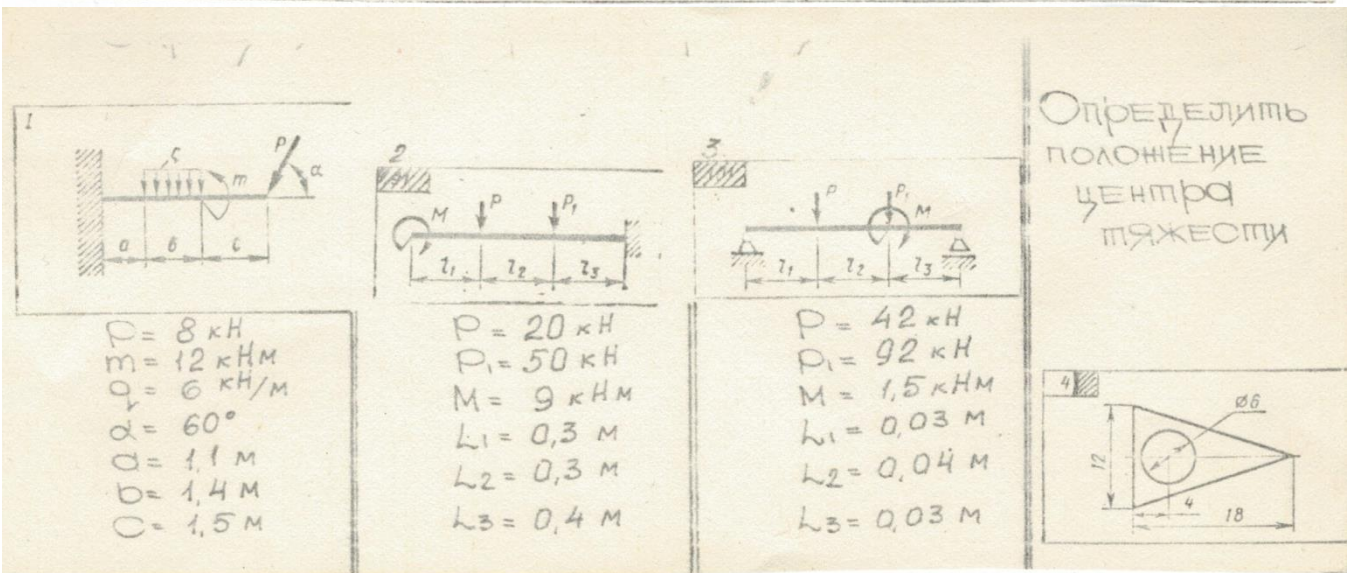 1
q
m
P
α
a
b
c
P = 8 кН
m = 12 кНм
q = 6 кН/м
α = 60°
a = 1,1 м
b = 1,4 м
c = 1,5 м
2
M
P
P₁
l₁
l₂
l₃
P = 20 кН
P₁ = 50 кН
M = 9 кНм
L₁ = 0,3 м
L₂ = 0,3 м
L₃ = 0,4 м
3
P
P₁
M
l₁
l₂
l₃
P = 42 кН
P₁ = 92 кН
M = 1,5 кНм
L₁ = 0,03 м
L₂ = 0,04 м
L₃ = 0,03 м
Определить
положение
центра
тяжести
4
ø6
12
4
18